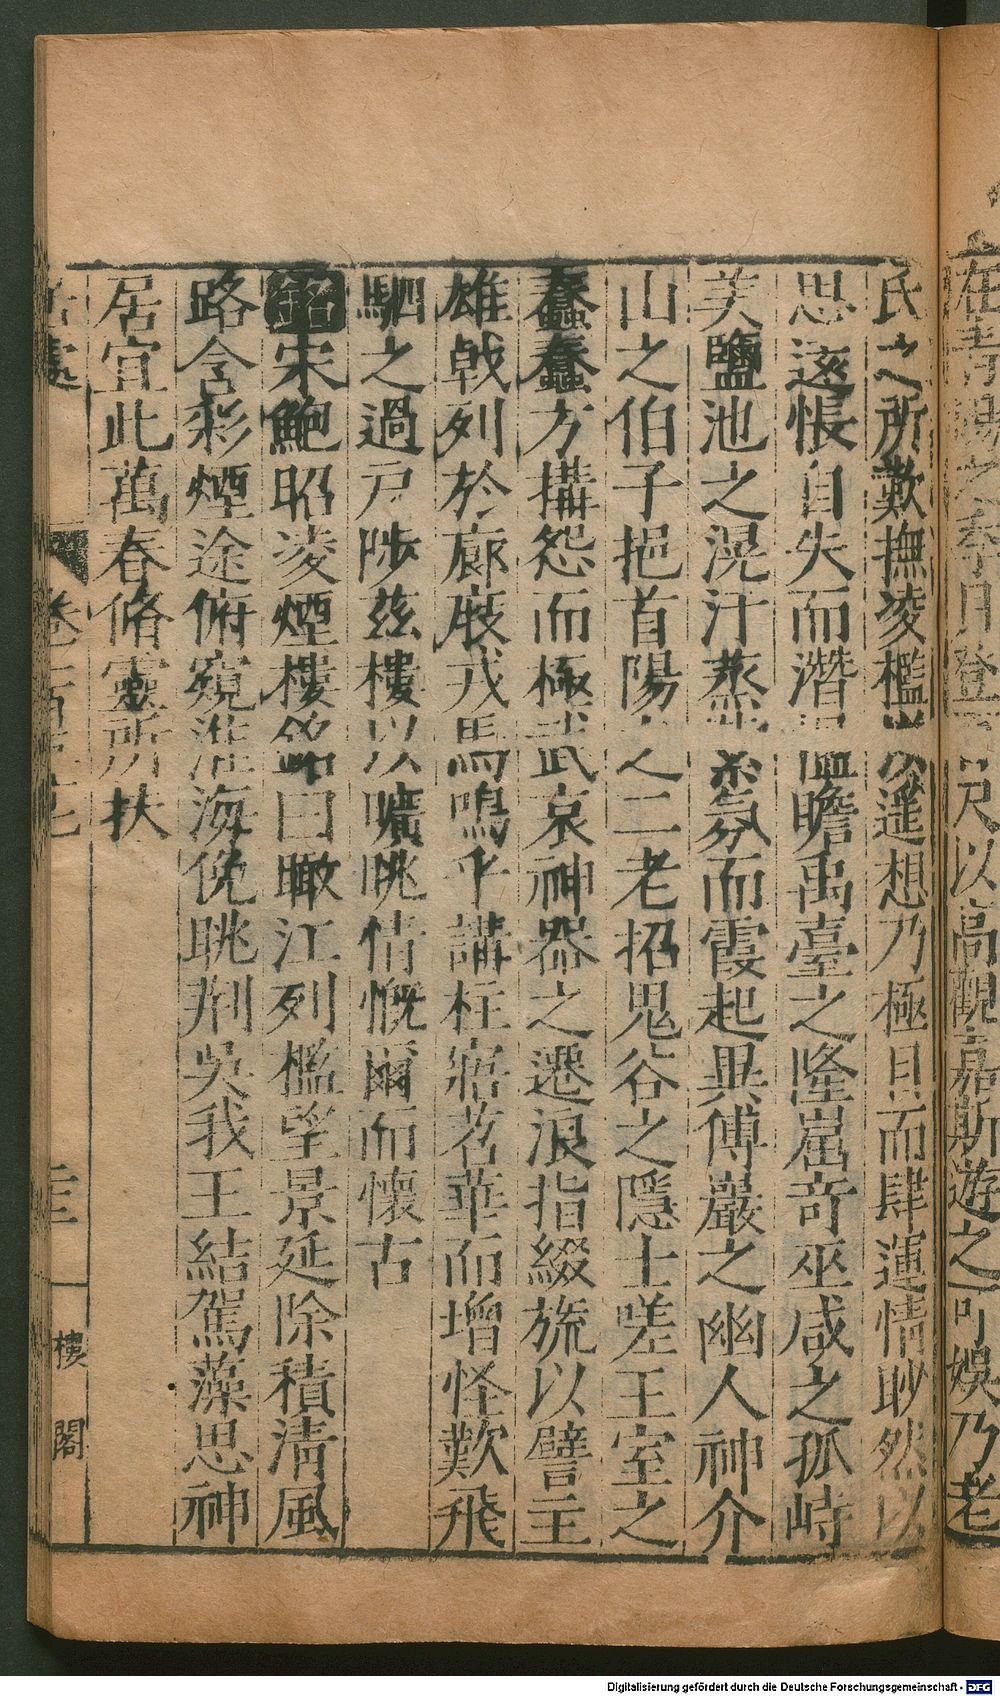 氏之所歎撫凌檻以遥想乃極目而肆運情眇然以
思遠悵自失而潛 瞻禹臺之隆崫奇巫咸之孤峙
美鹽池之滉汁蒸 氛而霞起異傅巖之幽人神介
山之伯子挹首陽之二老招鬼谷之隱士嗟王室之
蠢蠢方搆怨而極武哀神器之遷浪指綴旒以譬主
雄戟列於廊廐戎馬鳴乎講柱寤茗華而增怪歎飛
駟之過戸陟茲樓以曠眺情慨爾而懷古
銘宋鮑昭凌煙樓銘曰瞰江列檻望景延除積清風
路含彩煙途俯窺淮海俛眺荆吳我王結駕藻思神
居宜此萬春脩靈所扶
樓閣
在青陽之季月登 以高觀嘉斯遊之可娛乃老
Digitalisierung gefördert durch die Deutsche Forschungsgemeinschaft - DFG